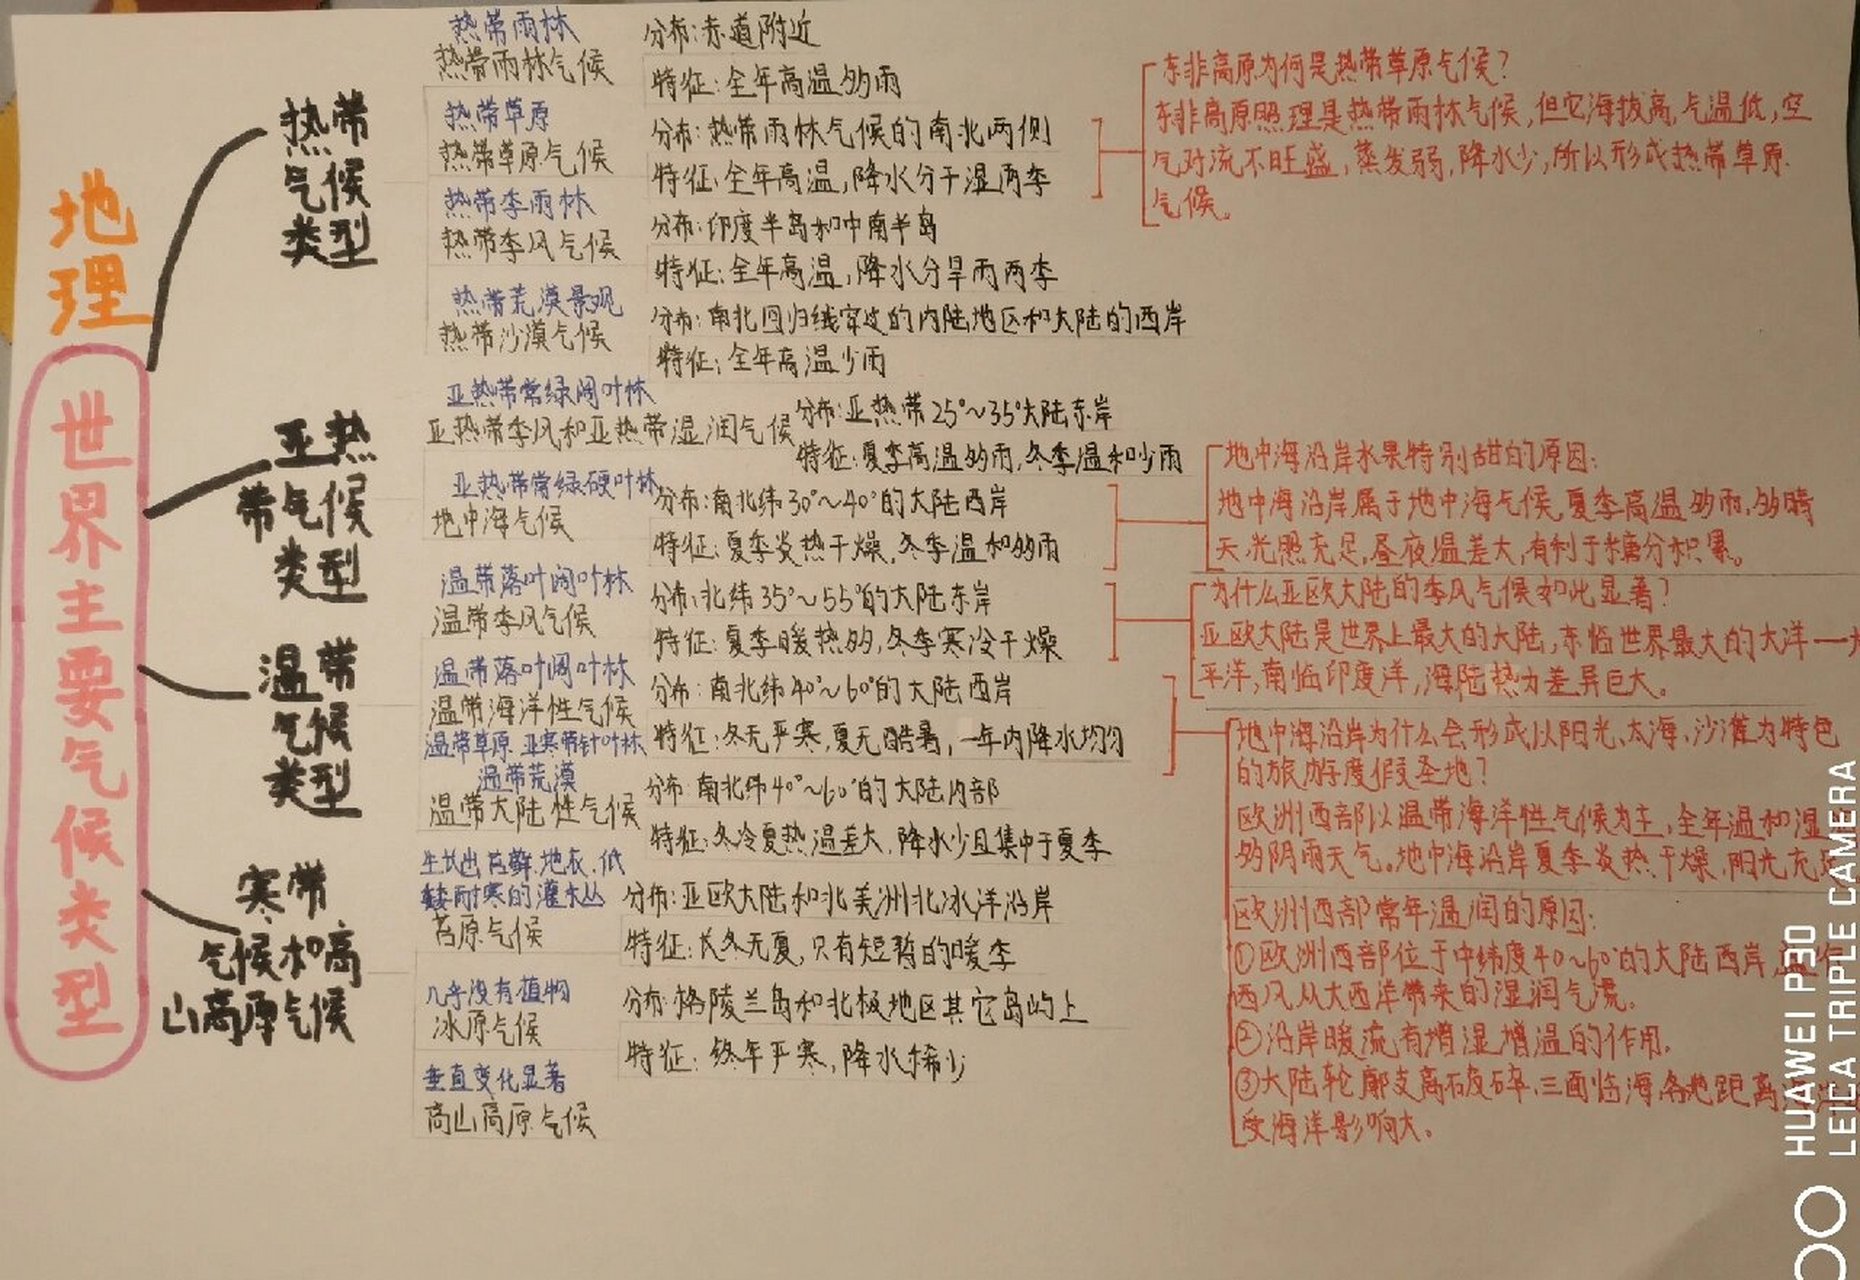 地理
世界主要气候类型
热带
气候
类型
热带雨林
热带雨林气候
分布:赤道附近
特征:全年高温多雨
热带草原
热带草原气候
分布:热带雨林气候的南北两侧
特征:全年高温,降水分干湿两季
东非高原为何是热带草原气候?
东非高原照理是热带雨林气候,但它海拔高,气温低,空
气对流不旺盛,蒸发弱,降水少,所以形成热带草原
气候。
热带季雨林
热带季风气候
分布:印度半岛和中南半岛
特征:全年高温,降水分旱雨两季
热带荒漠景观
热带沙漠气候
分布:南北回归线穿过的内陆地区和大陆的西岸
特征:全年高温少雨
亚热
带气候
类型
亚热带常绿阔叶林
亚热带季风和亚热带湿润气候
分布:亚热带25°~35°大陆东岸
特征:夏季高温多雨,冬季温和少雨
亚热带常绿硬叶林
地中海气候
分布:南北纬30°~40°的大陆西岸
特征:夏季炎热干燥,冬季温和多雨
地中海沿岸水果特别甜的原因:
地中海沿岸属于地中海气候,夏季高温多雨,多晴
天,光照充足,昼夜温差大,有利于糖分积累。
温带
气候
类型
温带落叶阔叶林
温带季风气候
分布:北纬35°~55°的大陆东岸
特征:夏季暖热多,冬季寒冷干燥
为什么亚欧大陆的季风气候如此显著?
亚欧大陆是世界上最大的大陆,东临世界最大的大洋一
平洋,南临印度洋,海陆热力差异巨大。
温带落叶阔叶林
温带海洋性气候
分布:南北纬40°~60°的大陆西岸
特征:冬无严寒,夏无酷暑,一年内降水均匀
地中海沿岸为什么会形成以阳光、大海、沙滩为特色
的旅游度假圣地?
欧洲西部以温带海洋性气候为主,全年温和湿
多阴雨天气。地中海沿岸夏季炎热干燥,阳光充
欧洲西部常年温润的原因:
①欧洲西部位于中纬度40~60°的大陆西岸,
西风从大西洋带来的湿润气流。
②沿岸暖流有增湿增温的作用。
③大陆轮廓支离破碎,三面临海,各地距离
受海洋影响大。
温带草原 亚寒带针叶林
温带荒漠
温带大陆性气候
分布:南北纬40°~60°的大陆内部
特征:冬冷夏热温差大,降水少且集中于夏季
寒带
气候和高
山高原气候
生长出苔藓、地衣、低
矮耐寒的灌木丛
苔原气候
分布:亚欧大陆和北美洲北冰洋沿岸
特征:长冬无夏,只有短暂的暖季
几乎没有植物
冰原气候
分布:格陵兰岛和北极地区其它岛屿上
特征:终年严寒,降水稀少
垂直变化显著
高山高原气候
HUAWEI P30
LEICA TRIPLE CAMERA